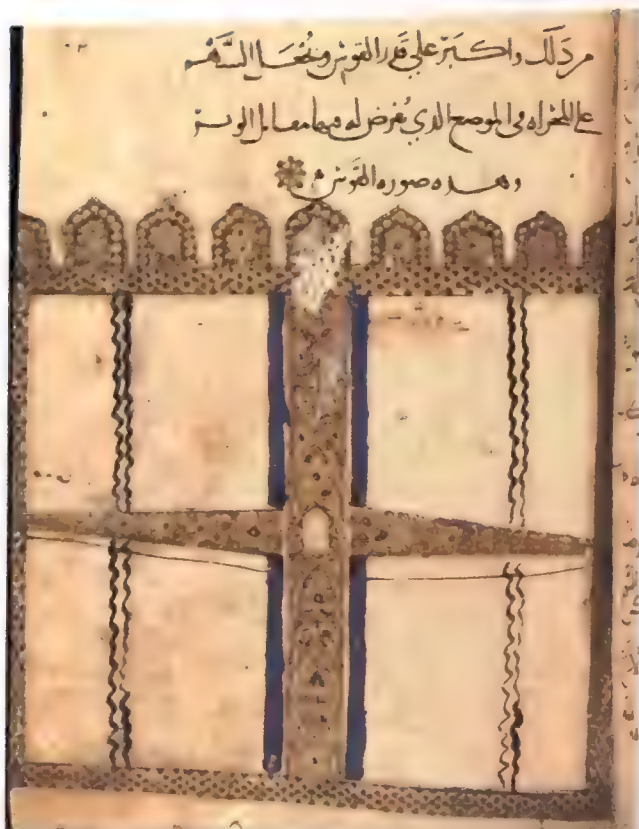 من ذلك واكبر علي قدر القوس وتجعل السهم
علي المجراه في الموضع الذي يفرض له فيها مقابل الوتر
وهده صوره القوس